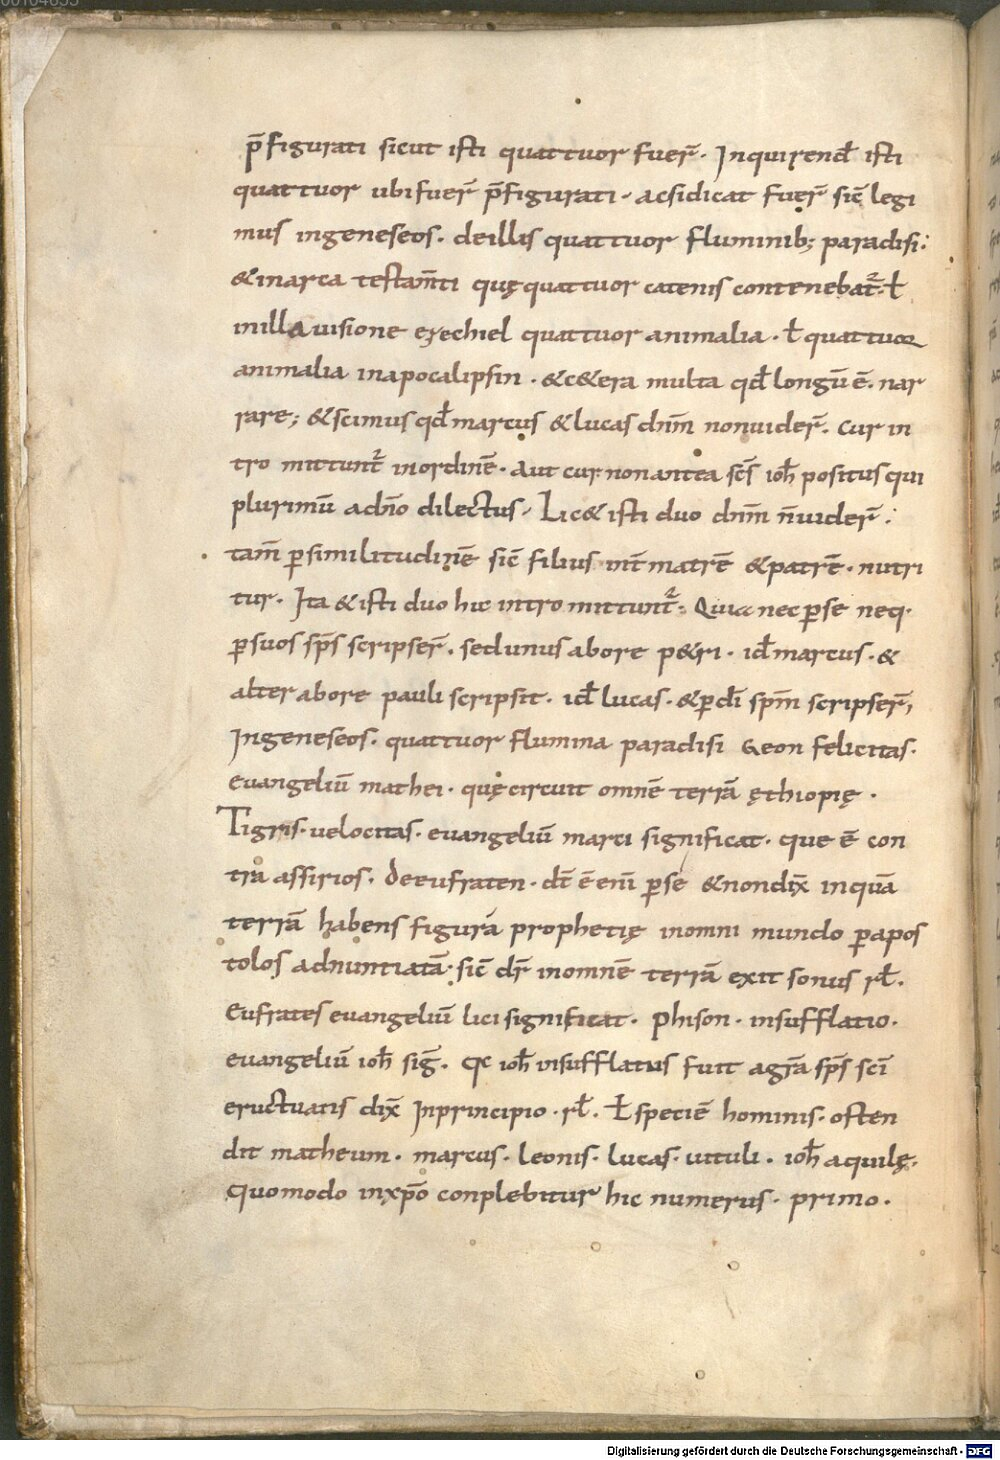 p̄figurati sicut isti quattuor fuer̄. Inquirend̄ isti
quattuor ubi fuer̄ p̄figurati. acsi dicat fuer̄ sic̄ legi
mus ingeneseos. deillis quattuor fluminib; paradisi:
& inarca testam̄ti quę quattuor catenis contenebat̄. ł
inilla uisione ezechiel quattuor animalia. ł quattuor
animalia inapocalipsin. &c&era multa qd̄ longū ē. nar
rare; & scimus qd̄ marcus & lucas dnm̄ nonuider̄. cur in
tro mittunt̄ inordinē. Aut cur non antea scs̄ ioh̄ positus qui
plurimū adn̄o dilectus. Lic& isti duo dnm̄ n̄uider̄:
tam̄ ꝑsimilitudinē sic̄ filius int̄ matrē & patrē. nutri
tur. Ita & isti duo hic intro mittunt̄. Quia nec ꝑse neq.
ꝑsuos sp̄s scripser̄. sed unus abore p&ri. id̄ marcus. &
alter abore pauli scripsit. id̄ lucas. & ꝑdī spm̄ scripser̄,
Ingeneseos. quattuor flumina paradisi Geon felicitas.
euangeliū mathei. quę circuit omnē terrā ęthiopię.
Tigris. uelocitas. euangeliū marci significat. que ē con
tra assirios. De eufraten. dt̄ ē eni ꝑse & non dix̄ inquā
terrā habens figurā prophetię inomni mundo ꝑapos
tolos adnuntiatā: sic̄ dr̄ inomnē terrā exit sonus rł.
Eufrates euangeliū luci significat. Phison. insufflatio.
euangeliū ioh̄ siḡ. Qc ioh̄ insufflatus fuit agr̄a sp̄s scī
eructuatis dix̄ Inprincipio. rł. Ł speciē hominis. osten
dit matheum. marcus. leonis. lucas. uituli. ioh̄ aquilę.
Quomodo inxp̄o conplebitur hic numerus. primo.
Digitalisierung gefördert durch die Deutsche Forschungsgemeinschaft - DFG